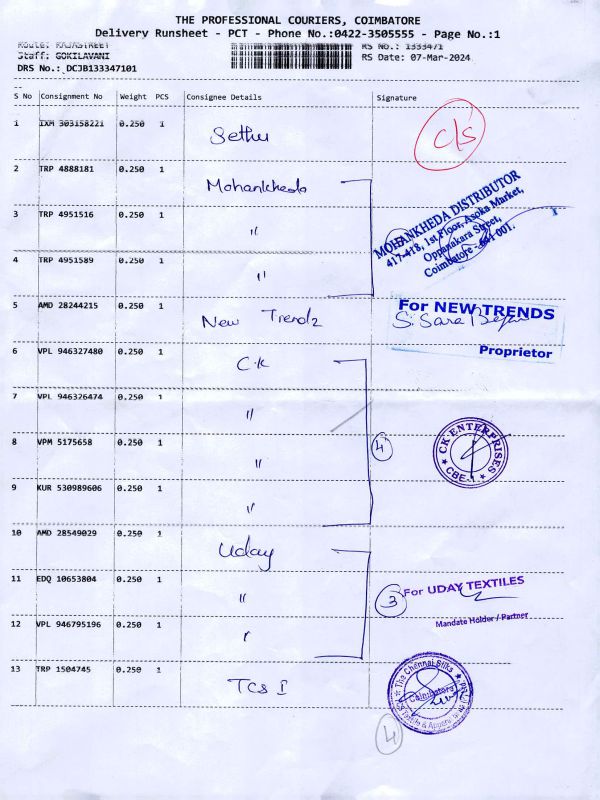 THE PROFESSIONAL COURIERS, COIMBATORE
Delivery Runsheet - PCT - Phone No.:0422-3505555 - Page No.:1
Route: RAJASTREET
RS No.: 1333471
Staff: GOKILAVANI
RS Date: 07-Mar-2024
DRS No.: DCJB133347101
S No Consignment No Weight PCS Consignee Details Signature
1 IXM 303158221 0.250 1 Sethu c/s
2 TRP 4888181 0.250 1 Mohankheda
3 TRP 4951516 0.250 1 "
MOHANKHEDA DISTRIBUTOR
417-418, 1st Floor, Asoka Market,
Oppanakara Street,
Coimbatore - 641 001.
4 TRP 4951589 0.250 1 "
5 AMD 28244215 0.250 1 New Trendz
For NEW TRENDS
Proprietor
6 VPL 946327480 0.250 1 C.K
7 VPL 946326474 0.250 1 "
8 VPM 5175658 0.250 1 " 4
CK ENTERPRISES
CBE-1
9 KUR 530989606 0.250 1 "
10 AMD 28549029 0.250 1 Uday
11 EDQ 10653804 0.250 1 " 3
For UDAY TEXTILES
Mandate Holder / Partner
12 VPL 946795196 0.250 1 "
13 TRP 1504745 0.250 1 TCS I
The Chennai Silks
Coimbatore
4